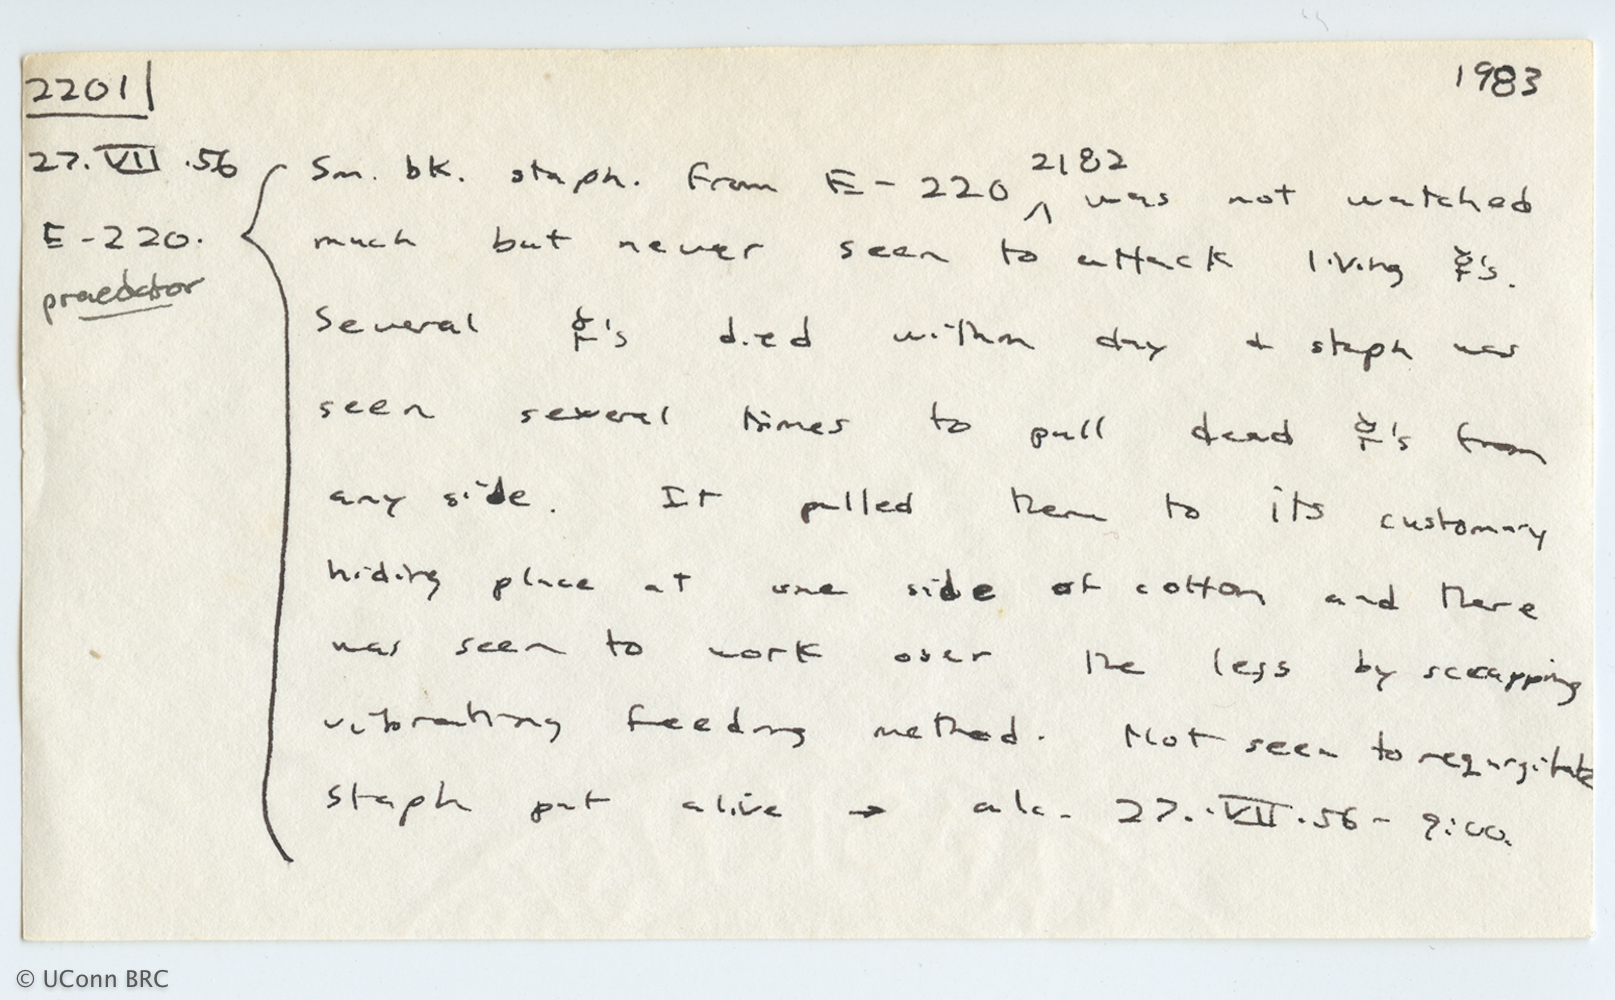 2201 1983
27.VII.56 Sm. bk. staph. from E-220 ^2182 was not watched
E-220. much but never seen to attack living ☿'s.
praedator
Several ☿'s died within day + staph was
seen several times to pull dead ☿'s from
any side. It pulled them to its customary
hiding place at one side of cotton and there
was seen to work over the legs by
vibrating feeding method. Not seen to regurgitate
staph put alive → alc. 27.VII.56 - 9:00.
© UConn BRC